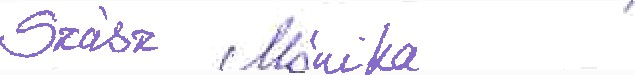 Szász Mónika